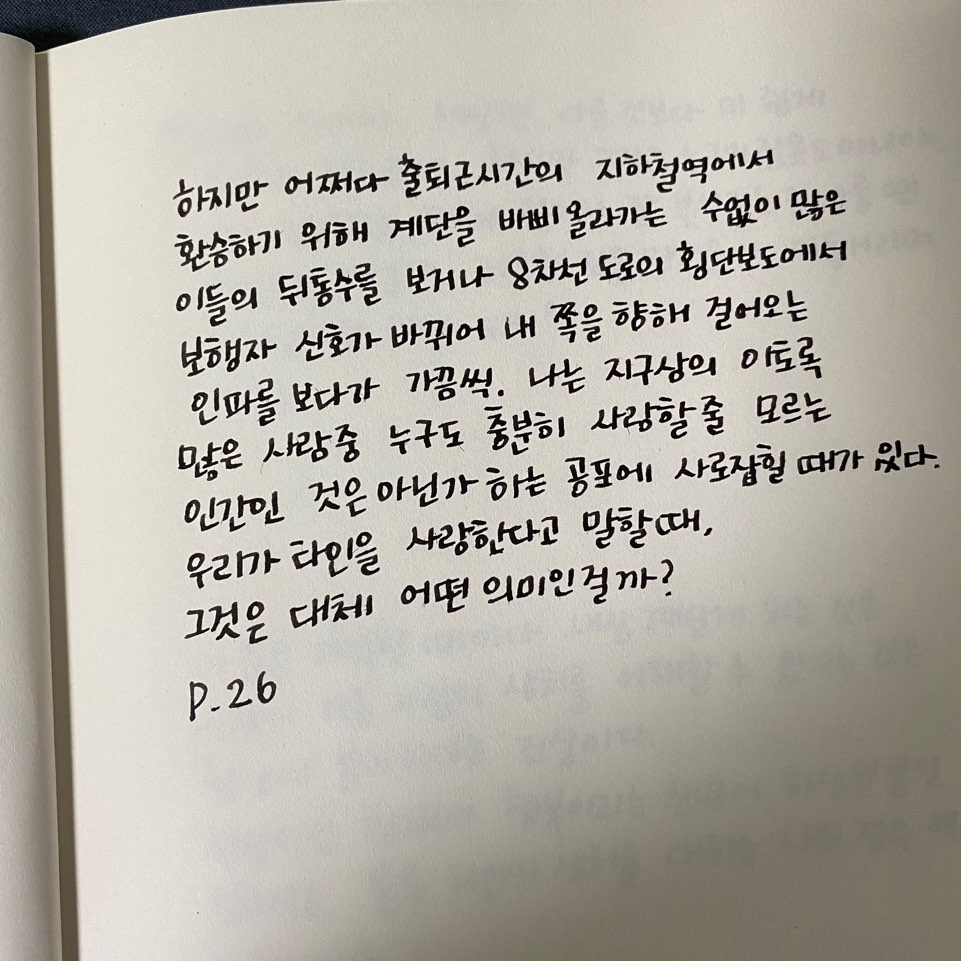 하지만 어쩌다 출퇴근시간의 지하철역에서
환승하기 위해 계단을 바삐 올라가는 수없이 많은
이들의 뒤통수를 보거나 8차선 도로의 횡단보도에서
보행자 신호가 바뀌어 내 쪽을 향해 걸어오는
인파를 보다가 가끔씩. 나는 지구상의 이토록
많은 사람중 누구도 충분히 사랑할줄 모르는
인간인 것은 아닌가 하는 공포에 사로잡힐 때가 있다.
우리가 타인을 사랑한다고 말할때,
그것은 대체 어떤 의미인걸까?
P.26